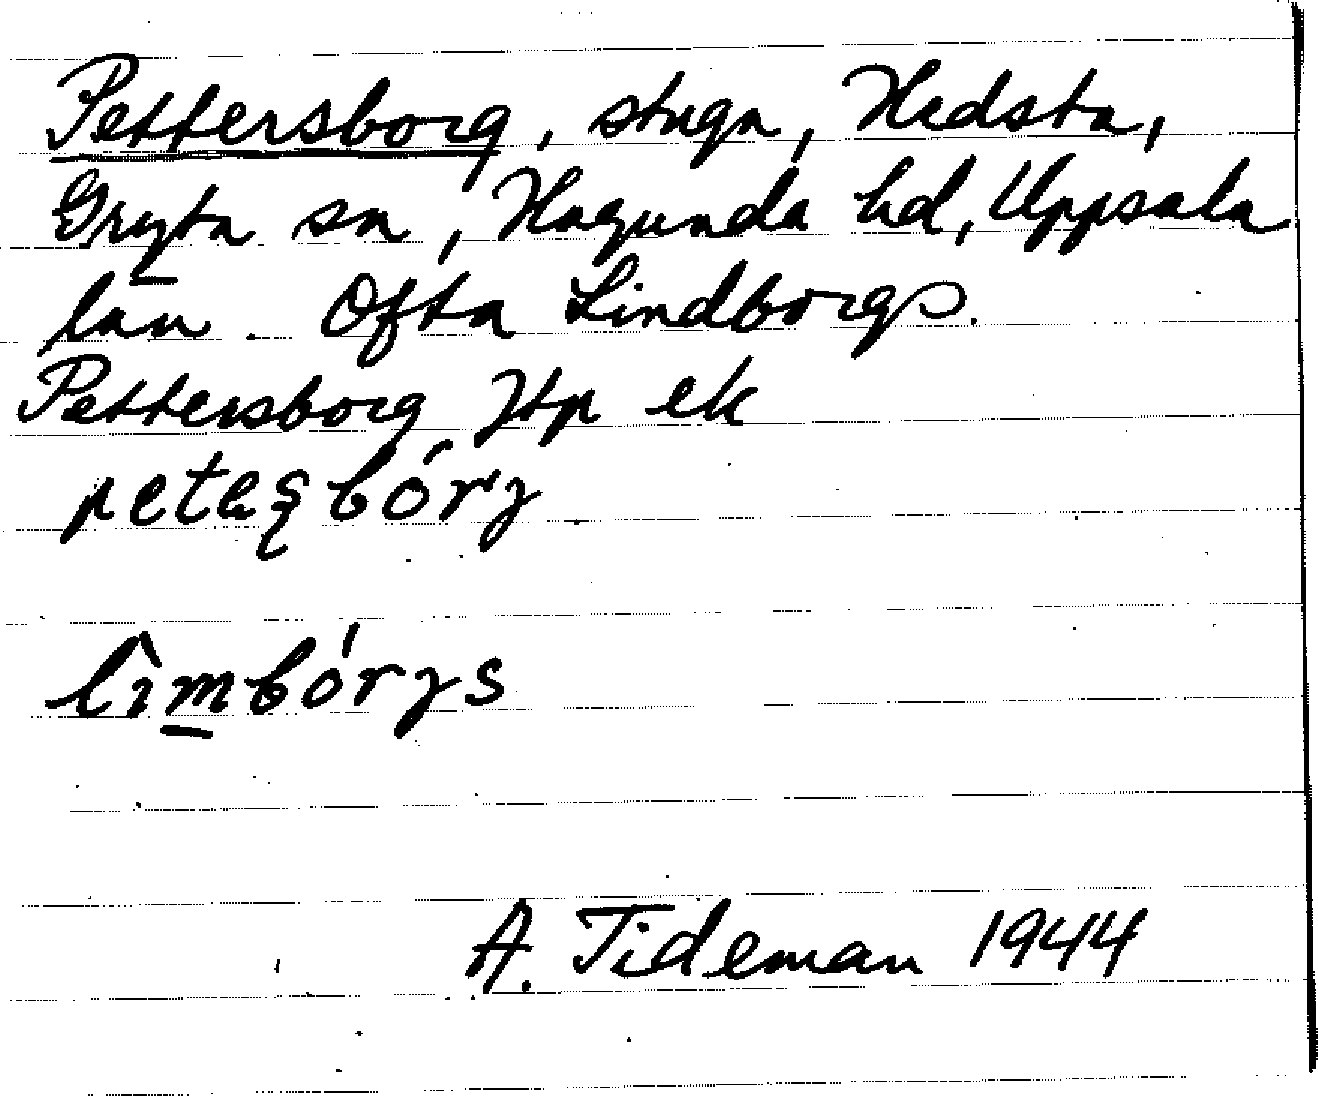 Pettersborg, stuga, Hedsta,
Gryta sn, Hagunda hd, Uppsala
län. Ofta Lindborgs.
Pettersborg Jtp ek
petaʂbórg
lìmbórgs
A. Tideman 1944